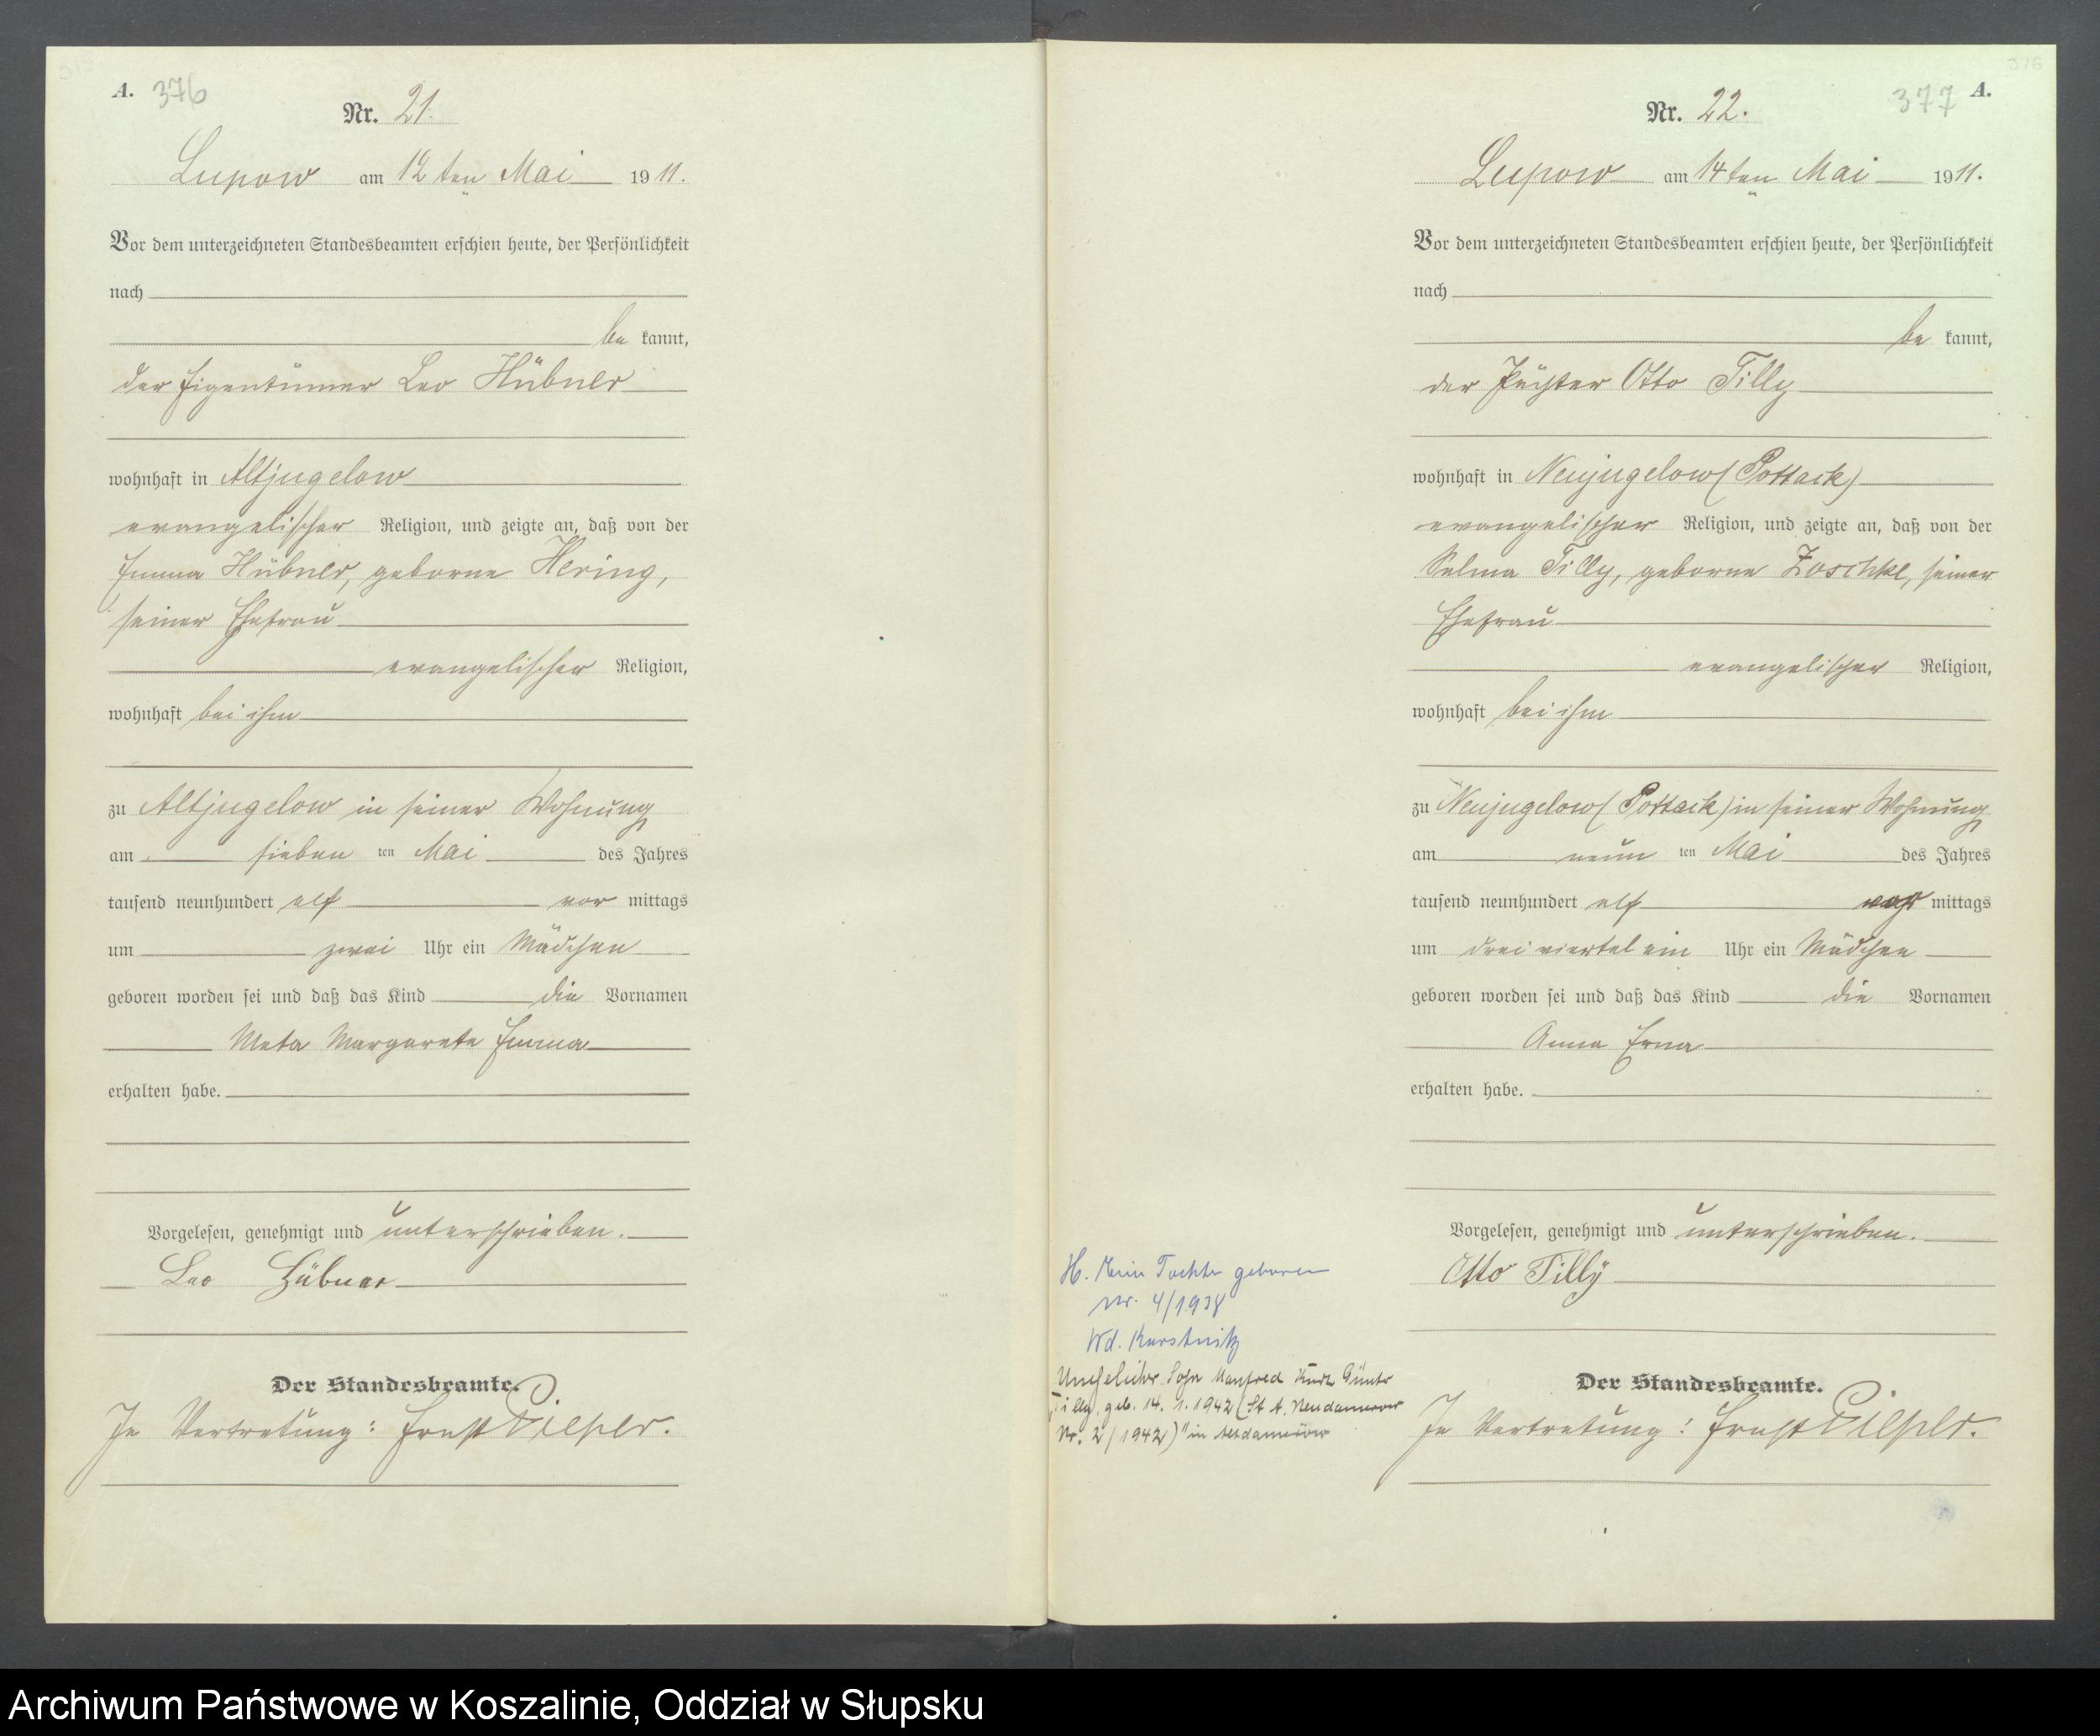 A. 376
Nr. 21.
Lupow am 12ten Mai 1911.
Vor dem unterzeichneten Standesbeamten erschien heute, der Persönlichkeit
nach
be kannt,
der Eigentümer Leo Hübner
wohnhaft in Altjugelow
evangelischer Religion, und zeigte an, daß von der
Emma Hübner, geborne Hering,
seiner Ehefrau
evangelischer Religion,
wohnhaft bei ihm
zu Altjugelow in seiner Wohnung
am sieben ten Mai des Jahres
tausend neunhundert elf vor mittags
um zwei Uhr ein Mädchen
geboren worden sei und daß das Kind die Vornamen
Meta Margarete Emma
erhalten habe.
Vorgelesen, genehmigt und unterschrieben.
Leo Hübner
Der Standesbeamte.
In Vertretung: Ernst Pieper.
377 A.
Nr. 22.
Lupow am 14ten Mai 1911.
Vor dem unterzeichneten Standesbeamten erschien heute, der Persönlichkeit
nach
be kannt,
der Pächter Otto Tilly
wohnhaft in Neujugelow (Pottack)
evangelischer Religion, und zeigte an, daß von der
Selma Tilly, geborne Zoschke, seiner
Ehefrau
evangelischer Religion,
wohnhaft bei ihm
zu Neujugelow (Pottack) in seiner Wohnung
am neun ten Mai des Jahres
tausend neunhundert elf mittags
um drei viertel ein Uhr ein Mädchen
geboren worden sei und daß das Kind die Vornamen
Anna Erna
erhalten habe.
Vorgelesen, genehmigt und unterschrieben.
Otto Tilly
Der Standesbeamte.
In Vertretung: Ernst Pieper.
Tochter geboren
Nr. 4/1938
Unehelicher Sohn Manfred Günter
Tilly, geb. 14. 1. 1942 (St A.
Nr. 2/1942)" in
Archiwum Państwowe w Koszalinie, Oddział w Słupsku